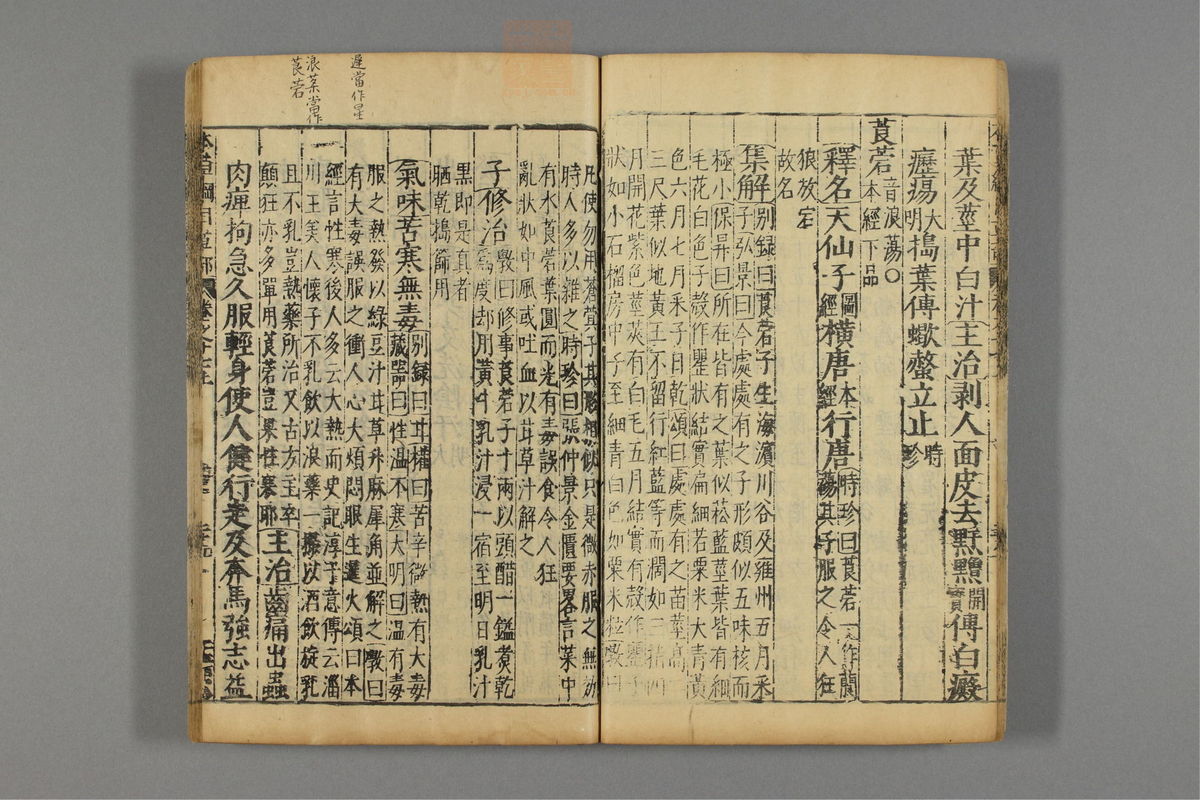 葉及莖中白汁主治剥人面皮去䵟䵳開寶傅白癜
癧瘍大明搗葉傅蠍螫立止時珍
莨菪音浪蕩〇本經下品
釋名天仙子圖經橫唐本經行唐時珍曰莨菪一作䕞蕩其子服之令人狂
狼放宕故名
集解别録曰莨菪子生海濱川谷及雍州五月采
子弘景曰今處處有之子形頗似五味核而
極小保昇曰所在皆有之葉似菘藍莖葉皆有細
毛花白色子殻作罌狀結實扁細若粟米大青黄
色六月七月采子日乾頌曰處處有之苗莖高二
三尺葉似地黄王不留行紅藍等而濶如三指四
月開花紫色莖莢有白毛五月結實有殻作罌子
狀如小石榴房中子至細青白色如粟米粒斆曰
凡使勿用蒼蓂子其形相似只是微赤服之無効
時人多以雜之時珍曰張仲景金匱要畧言菜中
有水莨菪葉圓而光有毒誤食令人狂
亂狀如中風或吐血以甘草汁解之
子修治斆曰修事莨菪子十兩以頭醋一鎰煮乾
爲度却用黄牛乳汁浸一宿至明日乳汁
黒即是真者
晒乾搗篩用
氣味苦寒無毒别録曰甘權曰苦辛微熱有大毒
藏器曰性温不寒大明曰温有毒
服之熱發以綠豆汁甘草升麻犀角並解之斆曰
有大毒誤服之衝人心大煩悶眼生暹火頌曰本
經言性寒後人多云大熱而史記淳于意傳云淄
川王美人懷子不乳飲以浪藥一撮以酒飲旋乳
且不乳豈熱藥所治又古方主卒
顛狂亦多單用莨菪豈果性寒耶主治齒痛出蟲
肉痺拘急久服輕身使人健行走及奔馬強志益
暹當作星
浪菜當作
莨菪